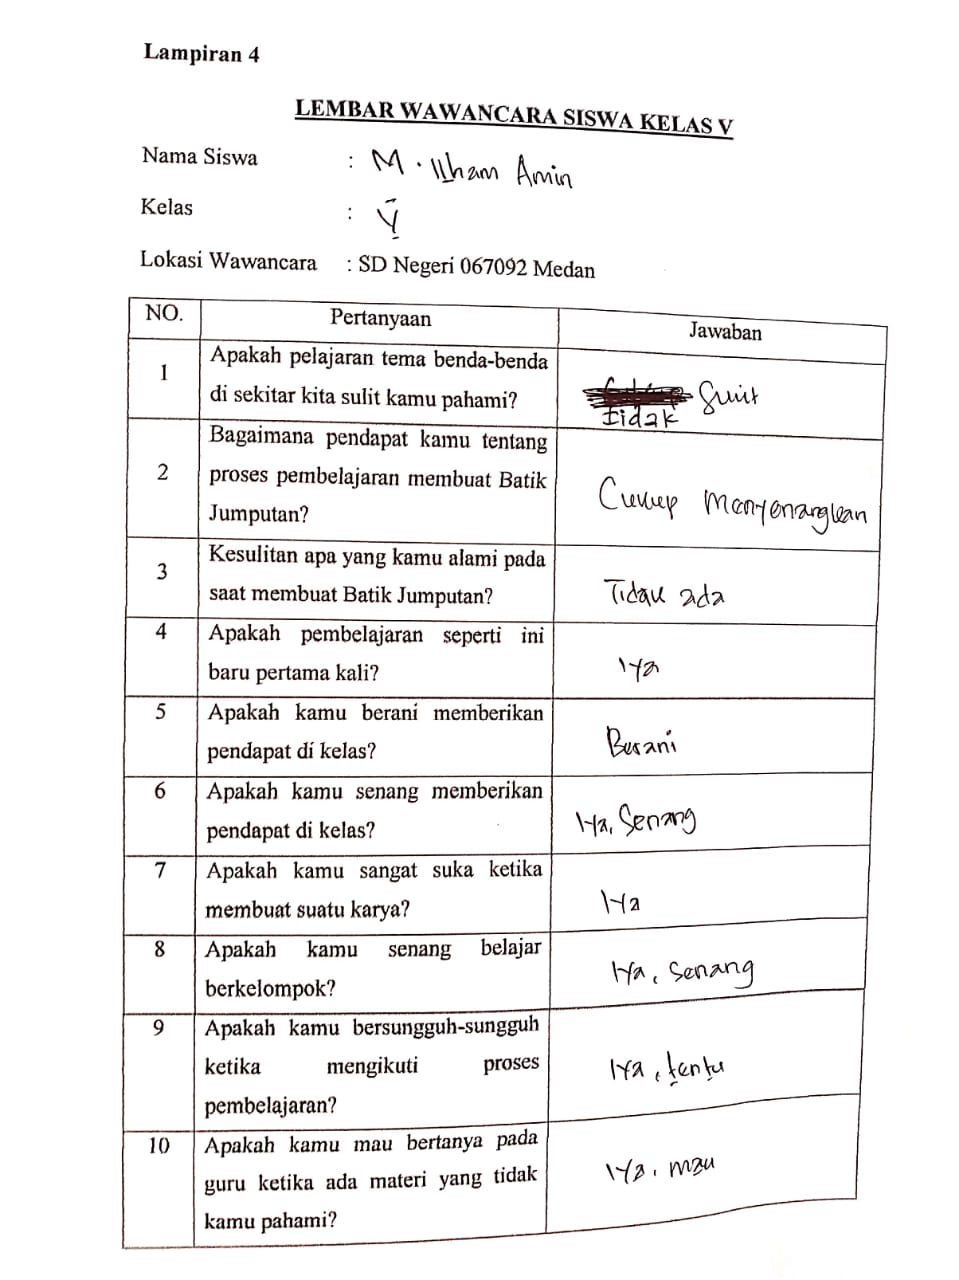 Lampiran 4
LEMBAR WAWANCARA SISWA KELAS V
Nama Siswa : M. Ilham Amin
Kelas : V
Lokasi Wawancara : SD Negeri 067092 Medan
NO. Pertanyaan Jawaban
1 Apakah pelajaran tema benda-benda
di sekitar kita sulit kamu pahami?
tidak Sulit
2 Bagaimana pendapat kamu tentang
proses pembelajaran membuat Batik
Jumputan?
Cukup Menyenangkan
3 Kesulitan apa yang kamu alami pada
saat membuat Batik Jumputan?
Tidak ada
4 Apakah pembelajaran seperti ini
baru pertama kali?
Iya
5 Apakah kamu berani memberikan
pendapat di kelas?
Berani
6 Apakah kamu senang memberikan
pendapat di kelas?
Iya, Senang
7 Apakah kamu sangat suka ketika
membuat suatu karya?
Iya
8 Apakah kamu senang belajar
berkelompok?
Iya, Senang
9 Apakah kamu bersungguh-sungguh
ketika mengikuti proses
pembelajaran?
Iya, tentu
10 Apakah kamu mau bertanya pada
guru ketika ada materi yang tidak
kamu pahami?
Iya, mau